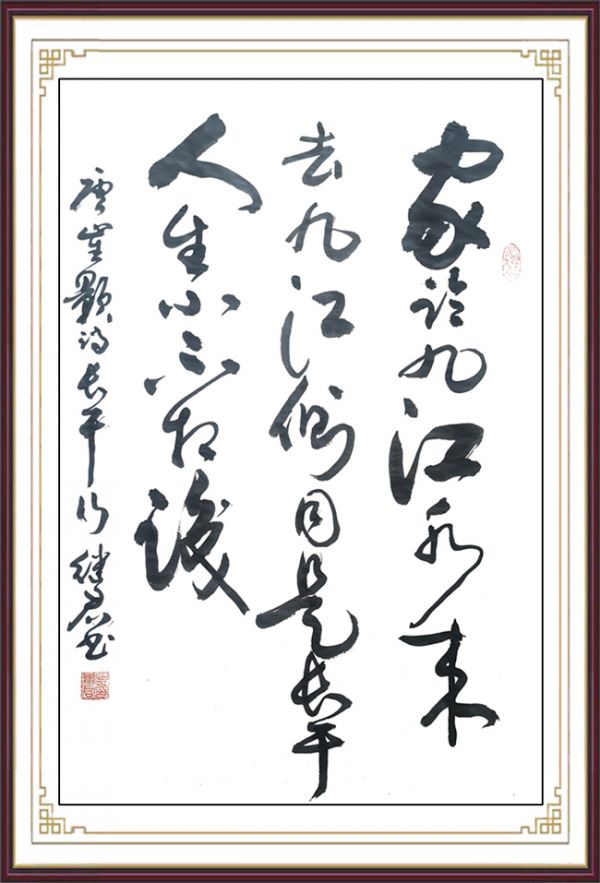 家臨九江水来
去九江側同是長干
人生小不相識
唐崔顥詩長干行 繼君書